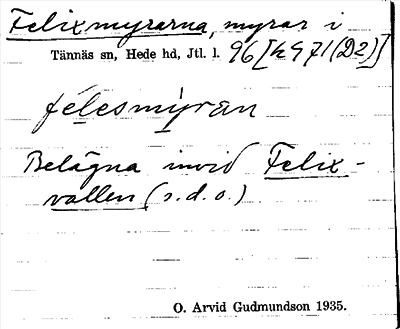 Felixmyrarna, myrar i
Tännäs sn, Hede hd, Jtl. l. 96 [k 971 (D2)]
félesmyran
Belägna invid Felix-
vallen (s.d.o.)
O. Arvid Gudmundson 1935.